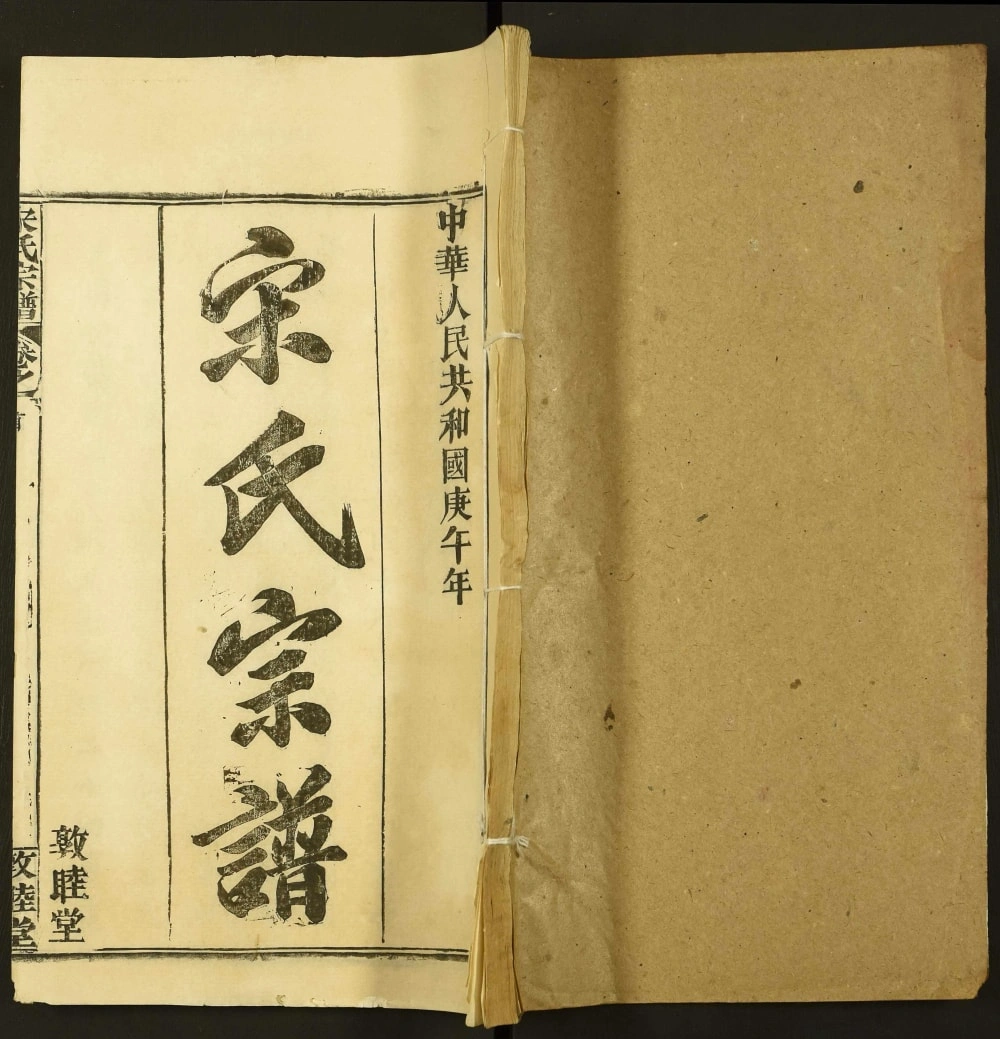 中華人民共和國庚午年
宋氏宗譜
敦睦堂
宋氏宗譜
卷之
首
敦睦堂